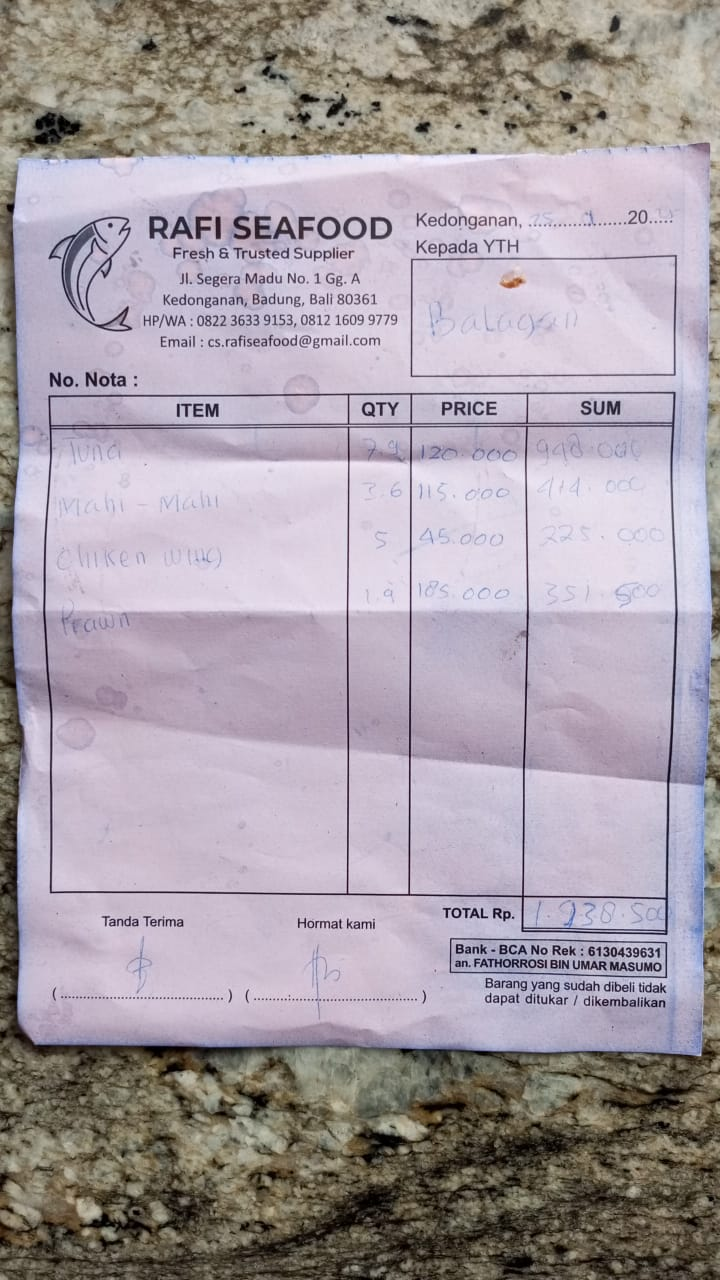 RAFI SEAFOOD
Fresh & Trusted Supplier
Jl. Segera Madu No. 1 Gg. A
Kedonganan, Badung, Bali 80361
HP/WA : 0822 3633 9153, 0812 1609 9779
Email : cs.rafiseafood@gmail.com
Kedonganan, 25 20
Kepada YTH
Balagan
No. Nota :
ITEM QTY PRICE SUM
Tuna 7.9 120.000 948.000
Mahi - Mahi 3.6 115.000 414.000
Chiken wing 5 45.000 225.000
Prawn 1.9 185.000 351.500
TOTAL Rp. 1.938.500
Tanda Terima Hormat kami
Bank - BCA No Rek : 6130439631
an. FATHORROSI BIN UMAR MASUMO
Barang yang sudah dibeli tidak
dapat ditukar / dikembalikan